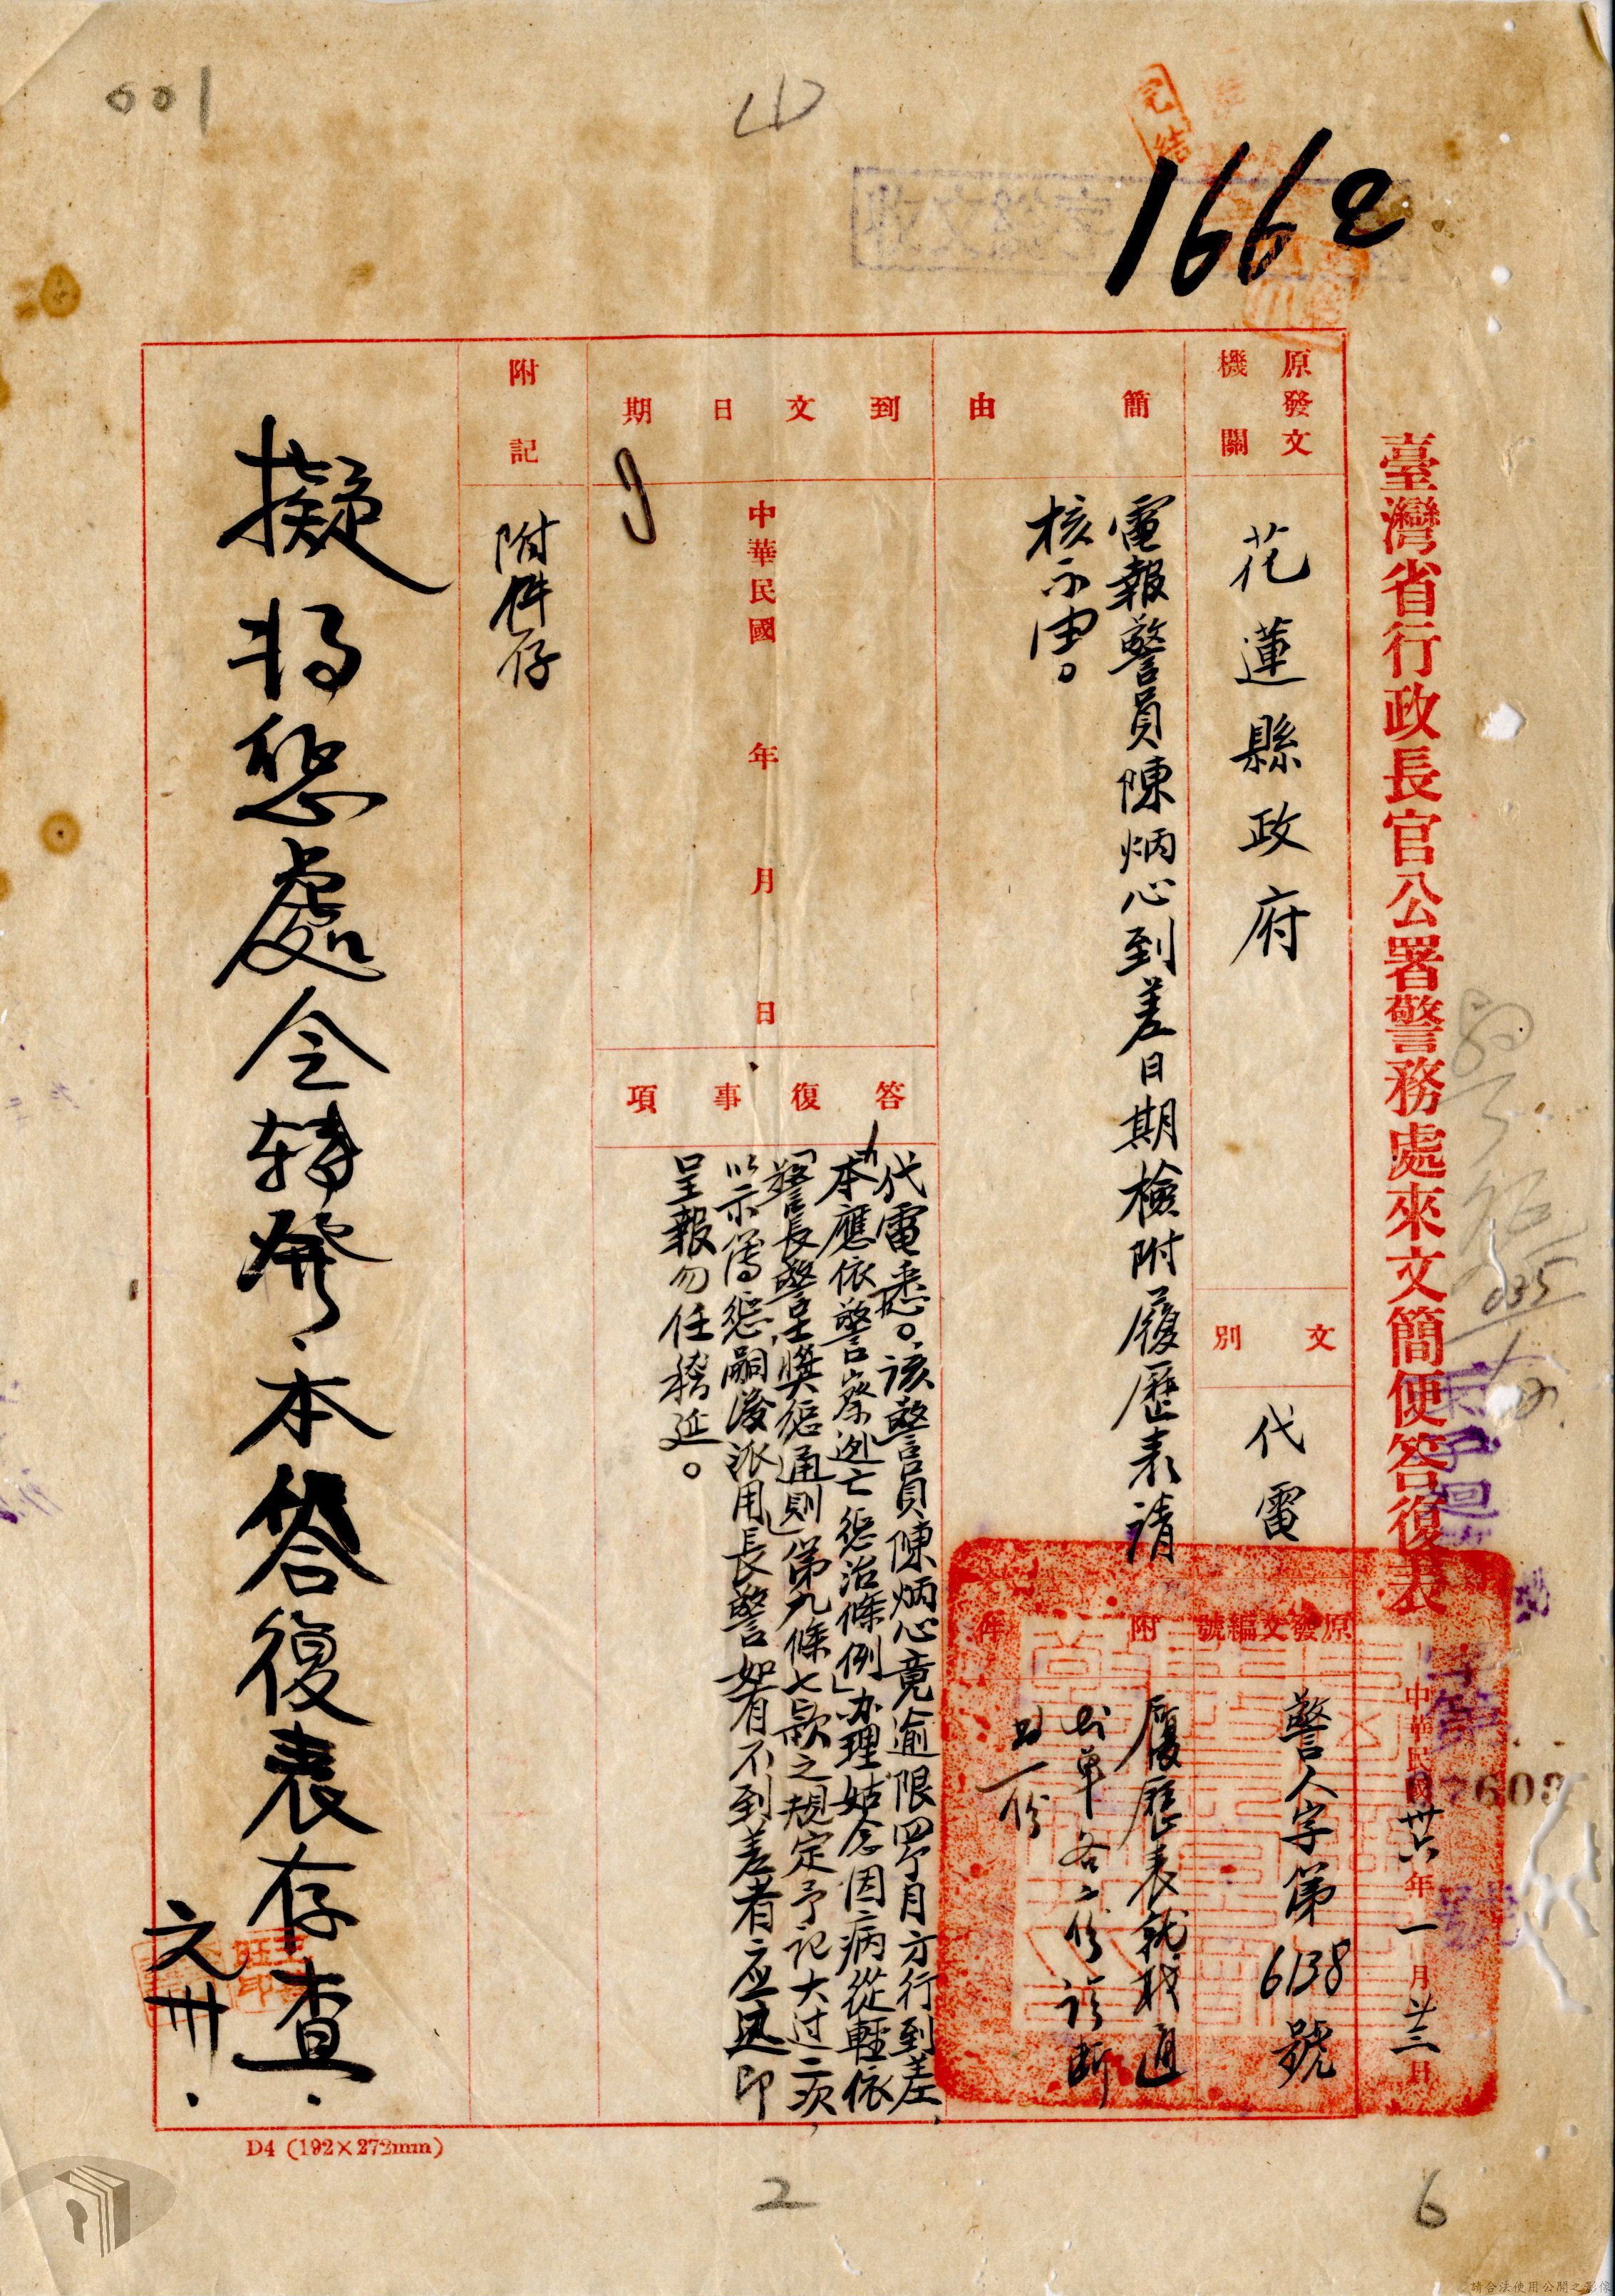 001
1662
完結
臺灣省行政長官公署警務處來文簡便答復表
中華民國卅六年一月廿三日
原發文機關
花蓮縣政府
文別
代電
原發文編號
警人字第6138號
簡由
電報警員陳炳心到差日期檢附履歷表請
核示由。
附件
履歷表就职通
知单各二份診断
一份
到文日期
中華民國 年 月 日
答復事項
代電悉。該警員陳炳心竟逾限四个月方行到差,
本應依「警察逃亡懲治條例」办理姑念因病從輕依
「警長警士獎懲通則」第九條七款之規定予記大过二次,
以示薄懲嗣後派用長警如有不到差者应迅即
呈報勿任稽延。
附記
附件存
擬將懲處令轉發.本答復表存查.
文卅.
D4 (192×272mm)
2
6
請合法使用公開之影像